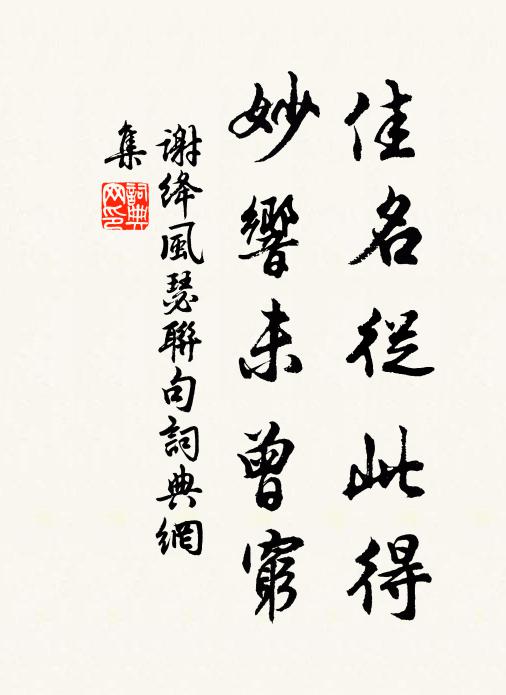 佳名從此得
妙響未曾窮
謝絳風瑟聯句詞典網
集
詞典
网印